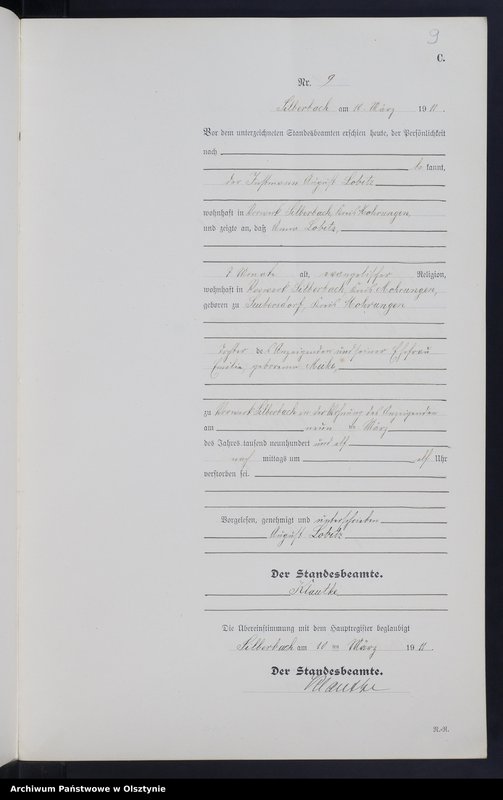 9
C.
Nr. 9
Silberbach am 10. März 1911.
Vor dem unterzeichneten Standesbeamten erschien heute, der Persönlichkeit
nach
be kannt,
der Instmann August Lobitz
wohnhaft in Vorwerk Silberbach, Kreis Mohrungen
und zeigte an, daß Anna Lobitz,
Monate alt, evangelischer Religion,
wohnhaft in Vorwerk Silberbach, Kreis Mohrungen,
geboren zu Kreis Mohrungen
Tochter des Anzeigenden und seiner Ehefrau
geborene
zu Vorwerk Silberbach in der Wohnung des Anzeigenden
am neun ten März
des Jahres tausend neunhundert und elf
nach mittags um elf Uhr
verstorben sei.
Vorgelesen, genehmigt und unterschrieben
August Lobitz
Der Standesbeamte.
Klautke
Die Übereinstimmung mit dem Hauptregister beglaubigt
Silberbach am 10 ten März 1911.
Der Standesbeamte.
Klautke
R.-R.
Archiwum Państwowe w Olsztynie